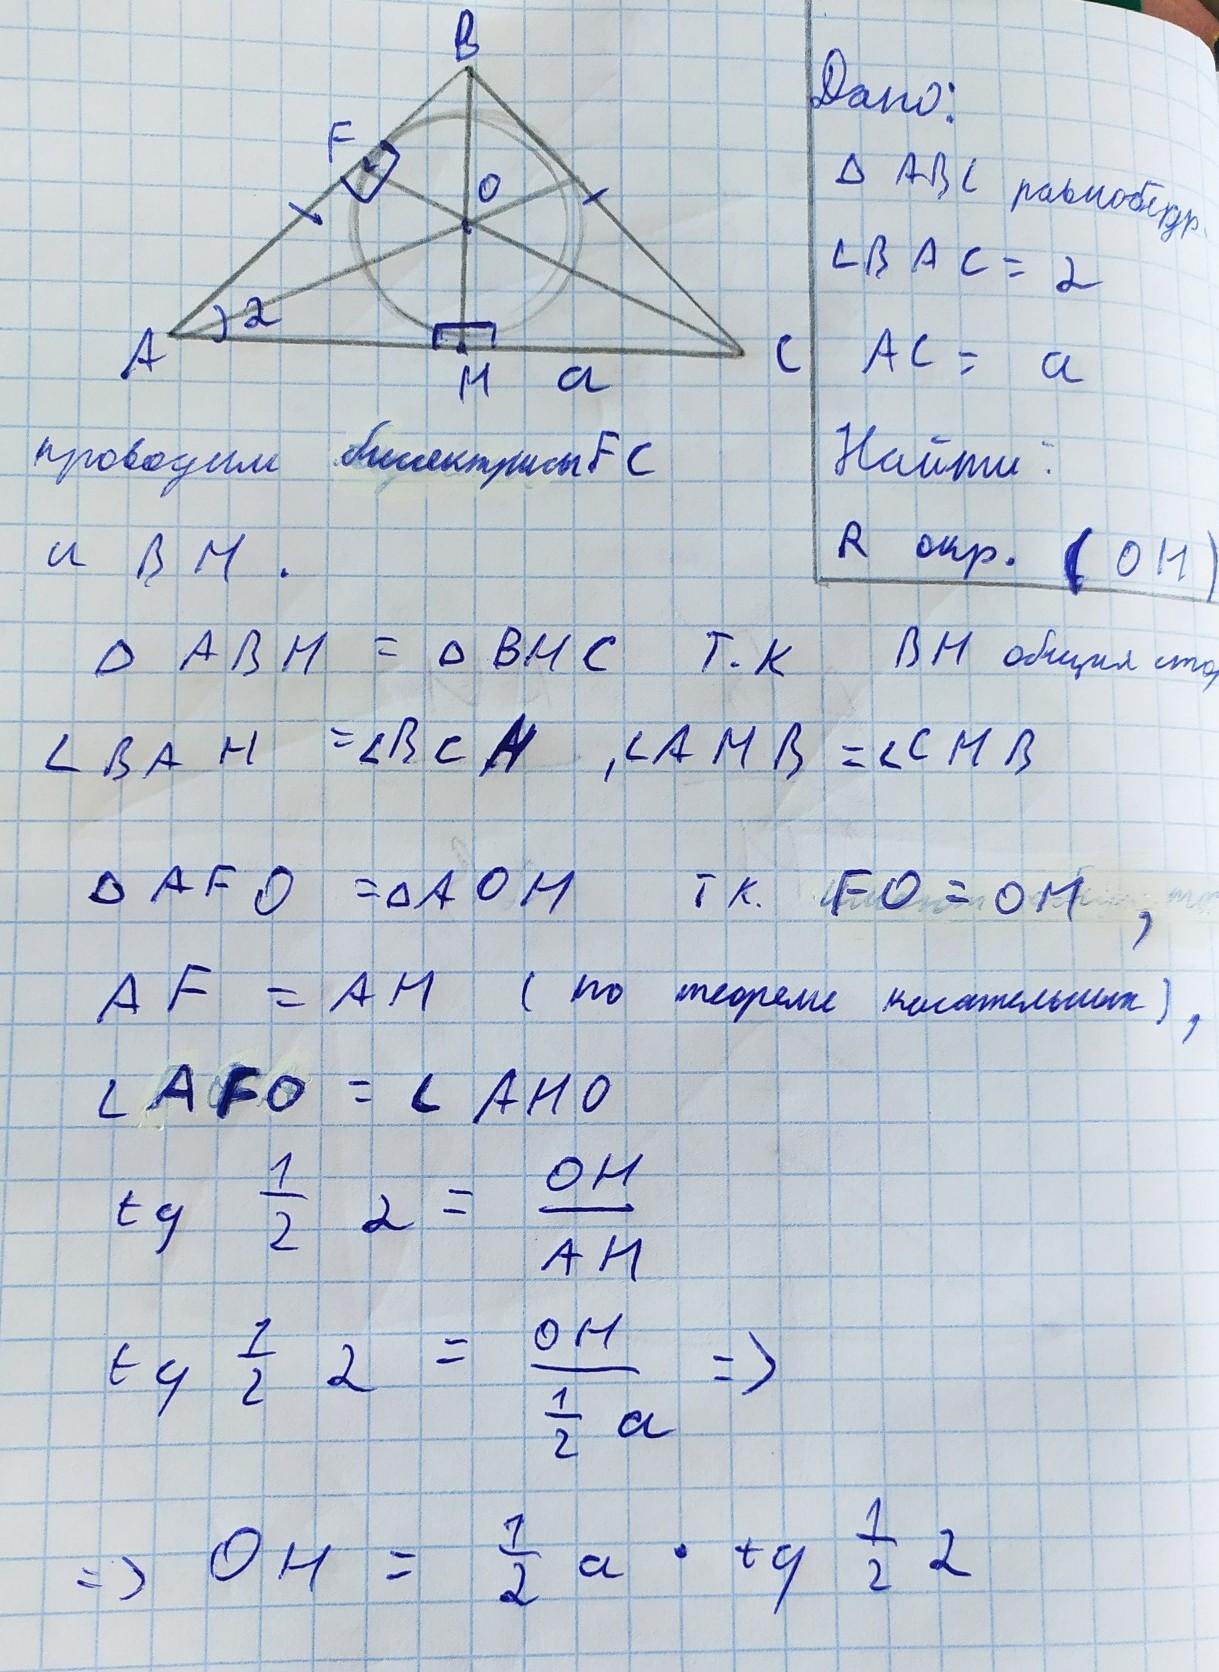 B
F
O
A
2
H
a
C
Дано:
Δ ABC равнобедр.
∠BAC = 2
AC = a
Найти:
R окр. (OH)
проводим биссектрисы FC
и BH.
Δ ABH = Δ BHC т.к BH общая сто
∠BAH = ∠BCH, ∠AHB = ∠CHB
Δ AFO = Δ AOH т к. FO = OH,
AF = AH (по теореме касательных),
∠AFO = ∠AHO
tg 1/2 2 = OH/AH
tg 1/2 2 = OH/(1/2 a) =>
=> OH = 1/2 a · tg 1/2 2